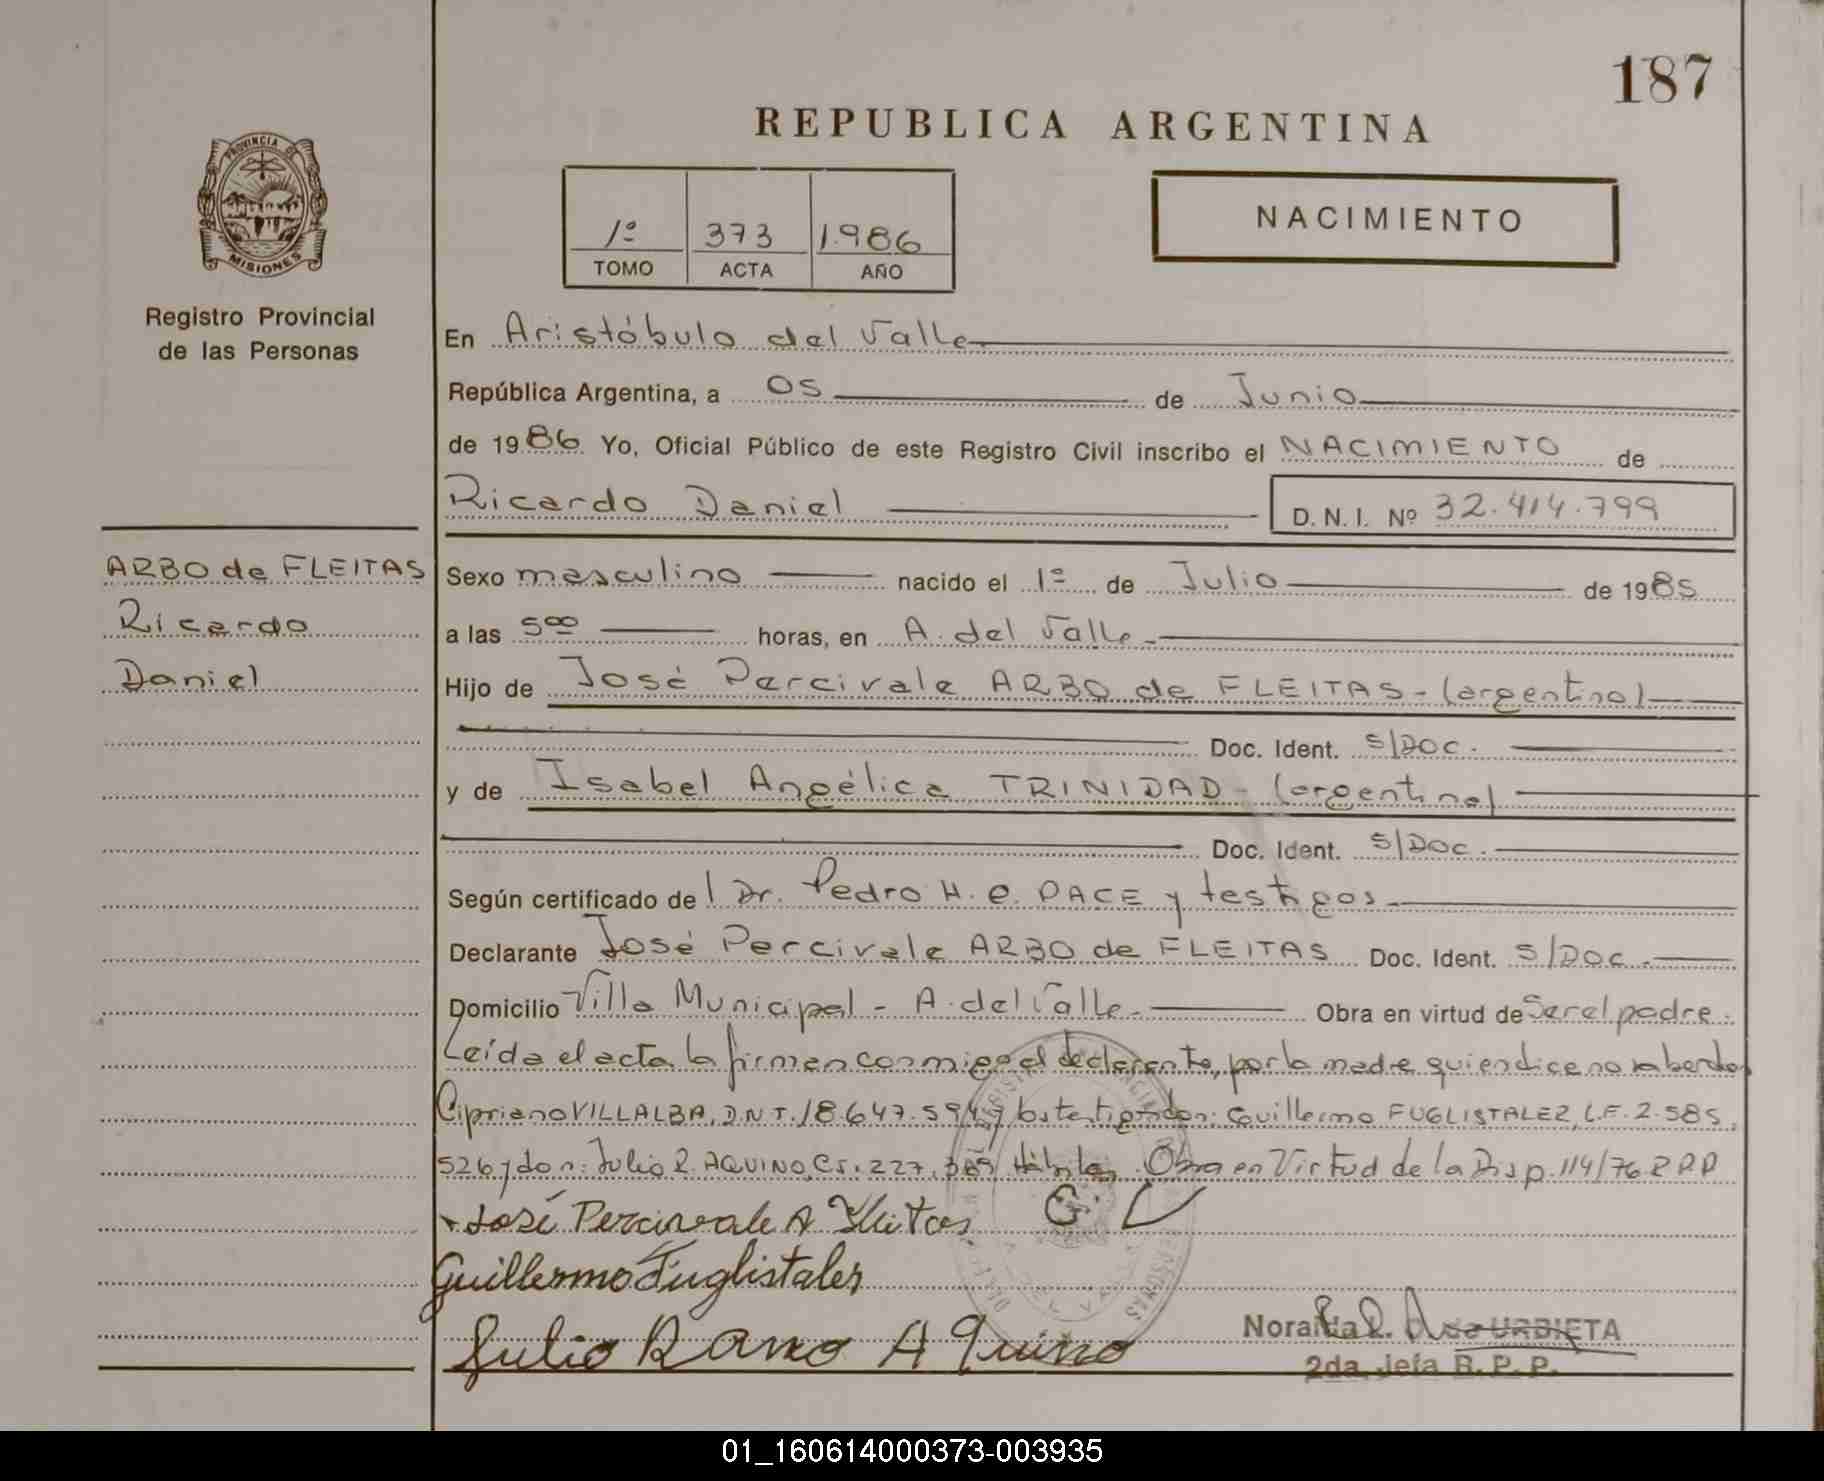 187
REPUBLICA ARGENTINA
PROVINCIA DE
MISIONES
Registro Provincial
de las Personas
1º 373 1.986
TOMO ACTA AÑO
NACIMIENTO
En Aristóbulo del Valle
República Argentina, a 05 de Junio
de 1986 Yo, Oficial Público de este Registro Civil inscribo el NACIMIENTO de
Ricardo Daniel D. N. I. Nº 32.414.799
ARBO de FLEITAS
Ricardo
Daniel
Sexo masculino nacido el 1º de Julio de 1985
a las 5ºº horas, en A. del Valle
Hijo de José Percivale ARBO de FLEITAS - (argentino)
Doc. Ident. S/DOC.
y de Isabel Angélica TRINIDAD - (argentina)
Doc. Ident. S/DOC.
Según certificado de l Dr. Pedro H. C. PACE y testigos
Declarante José Percivale ARBO de FLEITAS Doc. Ident. S/DOC.
Domicilio Villa Municipal - A. del Valle Obra en virtud de Ser el padre.
Leída el acta la firman conmigo el declarante, por la madre quien dice no
Cipriano VILLALBA, D.N.I. 18.647. y los testigos don: Guillermo FUGLISTALEZ, L.E. 2.585.
526 y don: Julio R. AQUINO, Cs. 227. Hábiles. Obra en Virtud de la Disp. 114/76 R.P.P
José Percivale A Fleitas C. V
Guillermo Fuglistaler
Julio Ramo Aquino
URBIETA
2da. Jefa R. P. P.
01_160614000373-003935